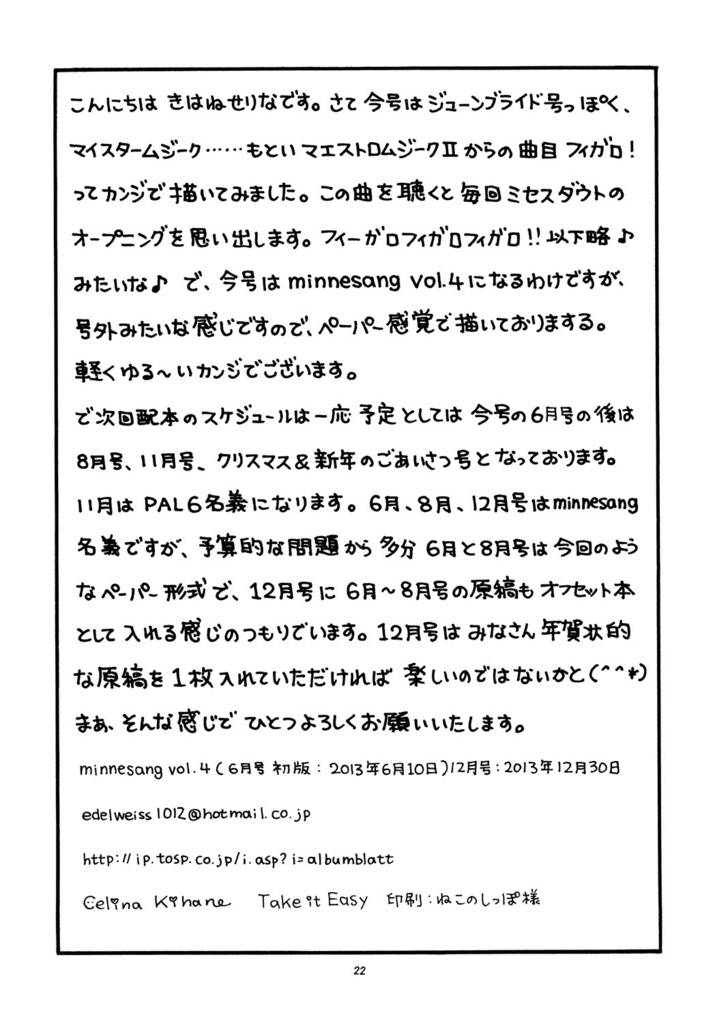 こんにちは きはねせりなです。さて 今号は ジューンブライド号っぽく、
マイスタームジーク……もとい マエストロムジークⅡ からの 曲目 フィガロ!
ってカンジで描いてみました。この曲を聴くと 毎回 ミセスダウトの
オープニングを思い出します。フィーガロフィガロフィガロ!!以下略♪
みたいな♪ で、今号は minnesang vol.4になるわけですが、
号外みたいな感じですので、ペーパー感覚で描いておりまする。
軽くゆる〜いカンジでございます。
で次回配本のスケジュールは一応 予定としては 今号の6月号の後は
8月号、11月号、クリスマス&新年のごあいさつ号となっております。
11月は PAL6名義になります。6月、8月、12月号はminnesang
名義ですが、予算的な問題から 多分 6月と8月号は今回のよう
なペーパー形式で、12月号に 6月〜8月号の原稿も オフセット本
として 入れる感じのつもりでいます。12月号は みなさん 年賀状的
な原稿を 1枚入れていただければ 楽しいのではないかと(^^*)
まぁ、そんな感じで ひとつよろしくお願いいたします。
minnesang vol.4(6月号 初版:2013年6月10日)12月号:2013年12月30日
edelweiss1012@hotmail.co.jp
http://ip.tosp.co.jp/i.asp?i=albumblatt
Celina Kihane Take it Easy 印刷:ねこのしっぽ様
22